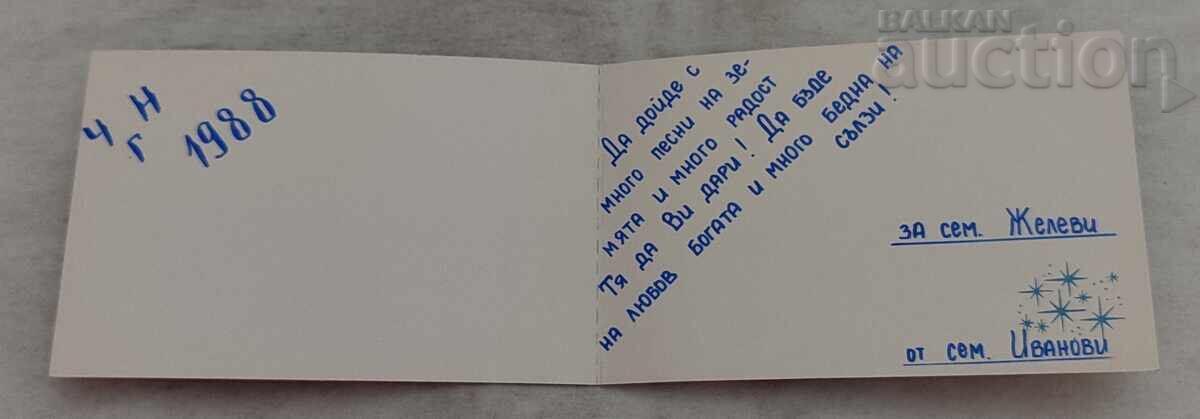 BALKAN
auction
Ч Н
Г 1988
Да дойде с
много песни на зе-
мята и много радост
Тя да Ви дари! Да бъде
на любов богата и много бедна на
сълзи!
за сем. Желеви
от сем. Иванови